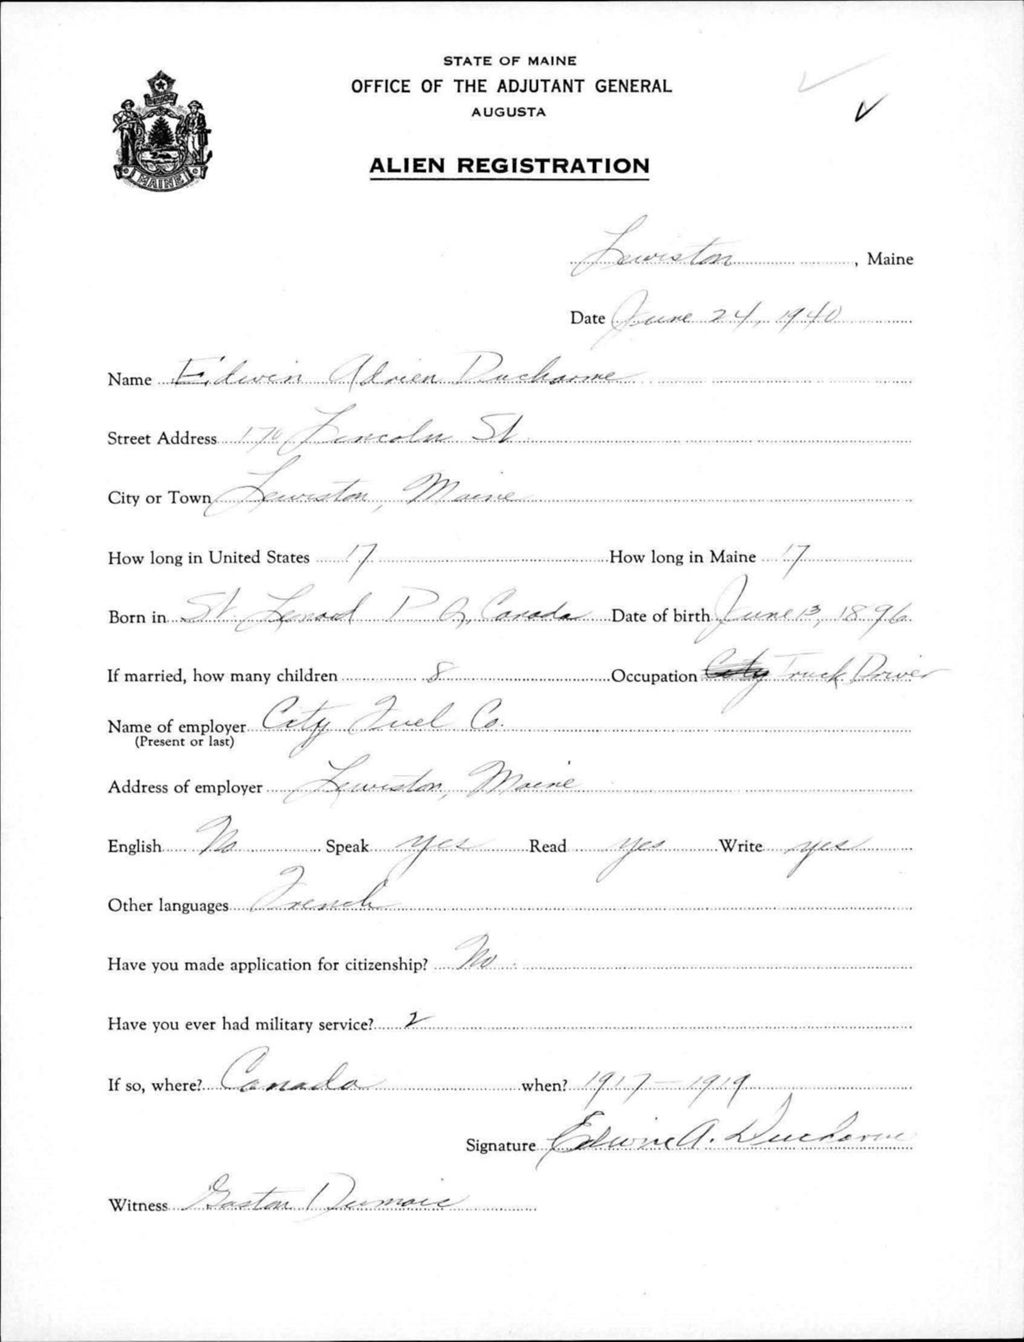 STATE OF MAINE
OFFICE OF THE ADJUTANT GENERAL
AUGUSTA
ALIEN REGISTRATION
MAINE
Lewiston, Maine
Date June 24, 1940
Name Edwin Adrien Ducharme
Street Address 170 Lincoln St
City or Town Lewiston, Maine
How long in United States 17 How long in Maine 17
Born in St Leonard P Q, Canada Date of birth June 13, 1896
If married, how many children 8 Occupation City Truck Driver
Name of employer City Fuel Co.
(Present or last)
Address of employer Lewiston, Maine
English No Speak yes Read yes Write yes
Other languages French
Have you made application for citizenship? No
Have you ever had military service? 2
If so, where? Canada when? 1917 - 1919
Signature Edwin A. Ducharme
Witness Gaston Dumais